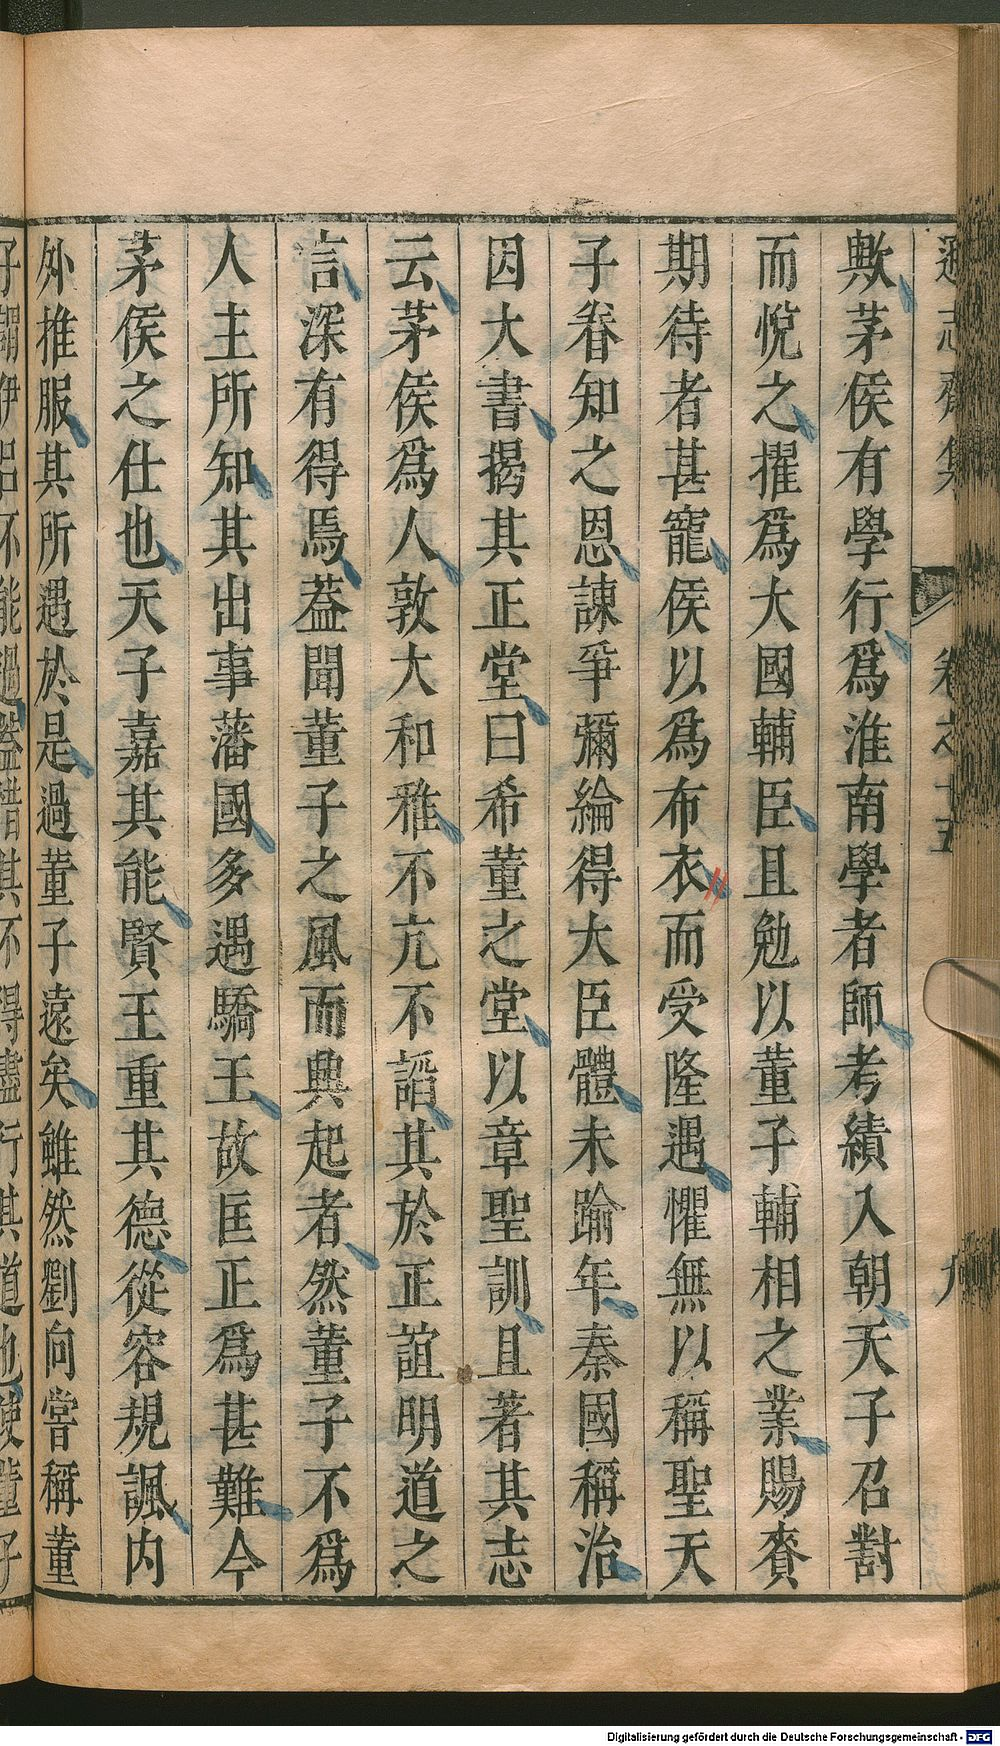 遜志齋集 卷之十五 九
歟茅侯有學行爲淮南學者師考績入朝天子召對
而悅之擢爲大國輔臣且勉以董子輔相之業賜賚
期待者甚寵侯以爲布衣而受隆遇懼無以稱聖天
子眷知之恩諫爭彌綸得大臣體未踰年秦國稱治
因大書揭其正堂曰希董之堂以章聖訓且著其志
云茅侯爲人敦大和雅不亢不謟其於正誼明道之
言深有得焉葢聞董子之風而興起者然董子不爲
人主所知其出事藩國多遇驕王故匡正爲甚難今
茅侯之仕也天子嘉其能賢王重其德從容規諷内
外推服其所遇於是過董子遠矣雖然劉向嘗稱董
子謂伊呂不能過葢惜其不得盡行其道也使董子
Digitalisierung gefördert durch die Deutsche Forschungsgemeinschaft - DFG